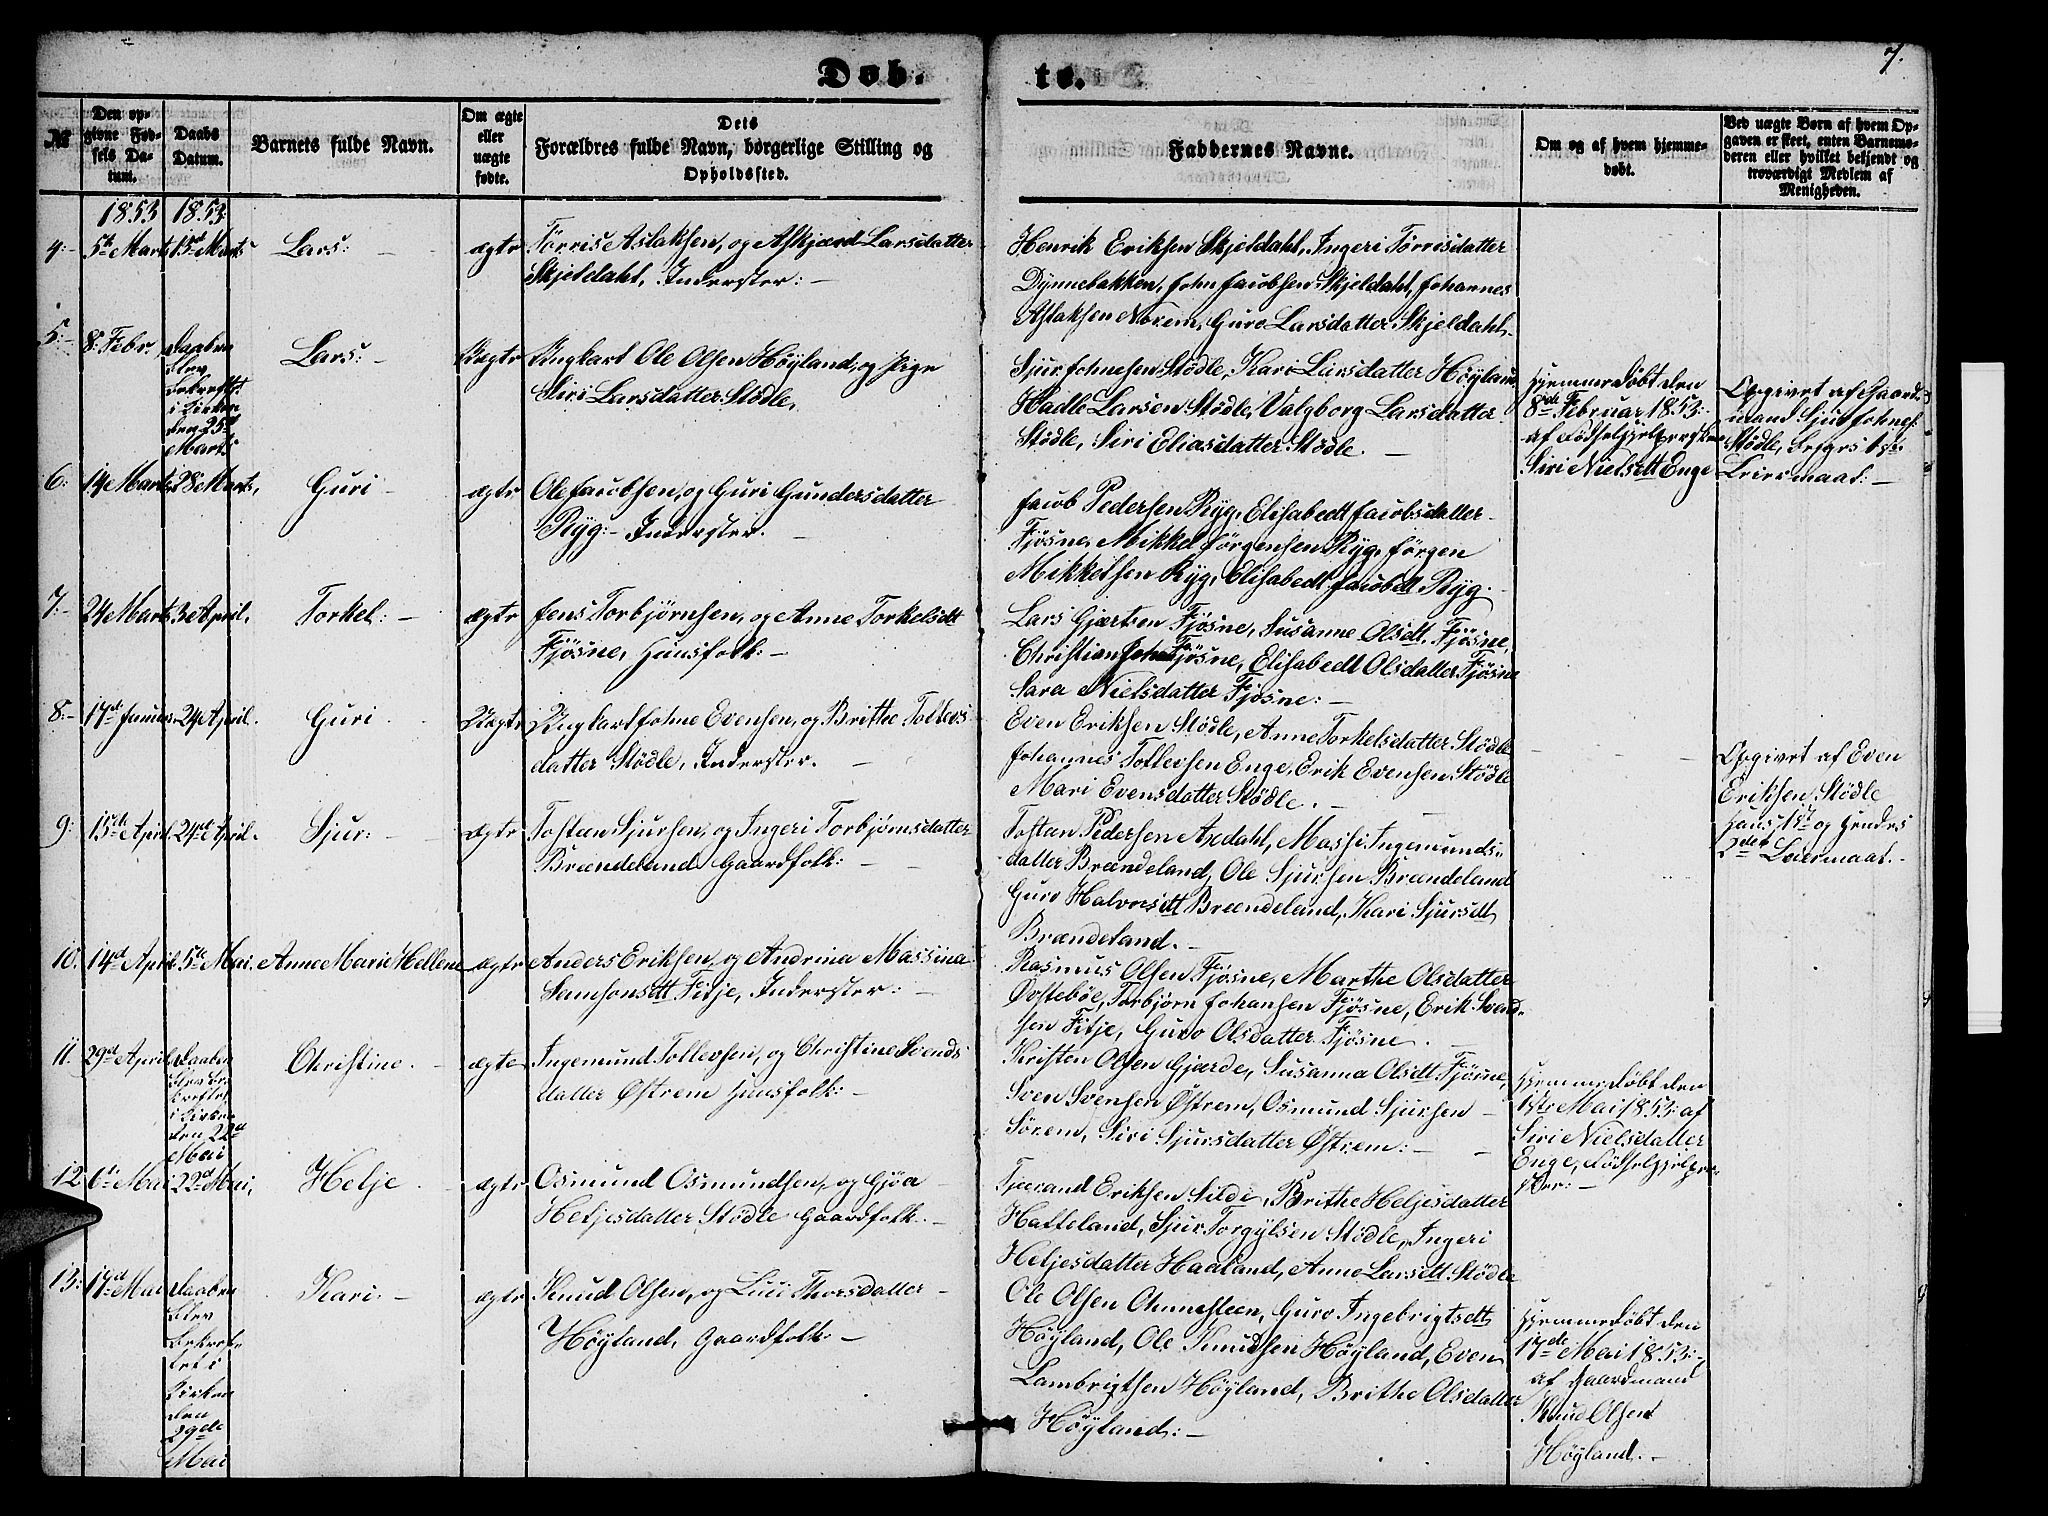 Døb.
te.
7.
№
Den op-
givne Fød-
sels Da-
tum.
Daabs
Datum.
Barnets fulde Navn.
Om ægte
eller
uægte
fødte.
Dets
Forældres fulde Navn, borgerlige Stilling og
Opholdssted.
Faddernes Navne.
Om og af hvem hjemme-
døbt.
Ved uægte Børn af hvem Op-
gaven er skeet, enten Barnemo-
deren eller hvilket bekjendt og
troværdigt Medlem af
Menigheden.
1853 1853
4:- 5te Marts 13d Marts Lars: - ægte Törris Aslaksen, og Askjærd Larsdatter
Skjeldahl, Inderster: -
Henrik Eriksen Skjeldahl, Ingeri Törrisdatter
Dynnebakken, John Jacobsen Skjeldahl, Johannes
Aslaksen Norem, Guro Larsdatter Skjeldahl.
5:- 8: Febr. Daaben
blev
bekræftet
i Kirken
den 25d
Marts
Lars: - Uægte Ungkarl Ole Olsen Höyland, og Pige
Siri Larsdatter Stödle.
Sjur Johnesen Stödle, Kari Larsdatter Höyland
Hadle Larsen Stödle, Valgborg Larsdatter
Stödle, Siri Eliasdatter Stödle. -
Hjemmedöbt den
8de Februar 1853:
af
Siri Nielsdtt Enge
Opgivet af Gaard-
mand Sjur Johnes:
Stödle, begges 1ste
Leiermaal: -
6: 14 Marts 28 Marts, Guri - ægte Ole Jacobsen, og Guri Gundersdatter
Ryg: - Inderster. -
Jacob Pedersen Ryg, Elisabedt Jacobsdatter
Fjösne, Mikkel Jörgensen Ryg, Jörgen
Mikkelsen Ryg, Elisabedt Jacobdt Ryg.
7:- 24 Marts 3 April. Torkel: - ægte Jens Torbjörnsen, og Anne Torkelsdt
Fjösne, Huusfolk: -
Lars Gjertsen Fjösne, Susanne Olsdt. Fjösne,
Christian Johns Fjösne, Elisabedt Olsdatter Fjösne
Sara Nielsdatter Fjösne: -
8:- 17d Januar 24 April. Guri Uægte Ungkarl Johne Evensen, og Brithe Tollevs-
datter Stödle, Inderster. -
Even Eriksen Stödle, Anne Torkelsdatter Stödle
Johannes Tollevsen Enge, Erik Evensen Stödle
Mari Evensdatter Stödle. -
Opgivet af Even
Eriksen Stödle
Hans 1ste og Hendes
2det Leiermaal. -
9: 15de April 24de April. Sjur: - ægte Tostan Sjursen, og Ingeri Torbjörnsdatter
Brændeland Gaardfolk: -
Tostan Pedersen Apdahl, Massi Ingemunds-
datter Brændeland, Ole Sjursen Brændeland
Guro Halvorsdtt Brændeland, Kari Sjursdt
Brændeland. -
10. 14d April 5te Mai. Anne Marie Hellene ægte Anders Eriksen, og Andrina Massina
Samsonsdtt Fitje, Inderster: -
Rasmus Olsen Fjösne, Marthe Olsdatter
Østebøe, Torbjörn Johansen Fjösne, Erik Svend-
sen Fitje, Guro Olsdatter Fjösne. -
11. 29d April Daaben
blev be-
kræftet
i Kirken
den 22d
Mai
Christine. - ægte Ingemund Tollevsen, og Christine Svends
datter Østrem Huusfolk: -
Kristen Olsen Gjærde, Susanna Olsdt Fjösne,
Sven Svensen Østrem, Osmund Sjursen -
Sörem, Siri Sjursdatter Østrem: -
Hjemmedöbt den
1ste Mai 1853: af
Siri Nielsdatter
Enge,
12 6te Mai 22d Mai, Helje - ægte Osmund Osmundsen, og Gjöa
Heljesdatter Stödle Gaardfolk: -
Tjerand Eriksen Silde, Brithe Heljesdatter
Hatteland, Sjur Torgylsen Stödle, Ingeri
Heljesdatter Haaland, Anne Larsdtt Stödle
13: 17d Mai Daaben
blev
bekræf-
tet i
Kirken
den
29de
Mai
Kari: - ægte Knud Olsen, og Lisi Thorsdatter -
Höyland, Gaardfolk: -
Ole Olsen Ommesteen, Guro Ingebrigtsdt
Höyland, Ole Knudsen Höyland, Even
Lambrigtsen Höyland, Brithe Olsdatter
Höyland: -
Hjemmedöbt den
17de Mai 1853: -
af Gaardmand
Knud Olsen
Höyland. -